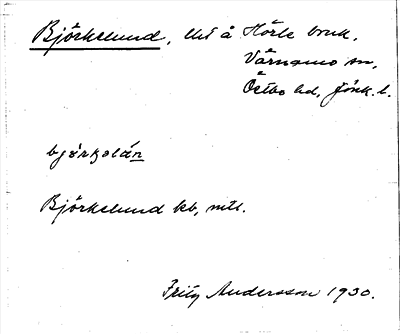 Björkelund, lht å Hörle bruk,
Värnamo sn,
Östbo hd, Jönk. l.
bjö̀rkalán
Björkelund kb, mtl.
Fritz Andersson 1930.